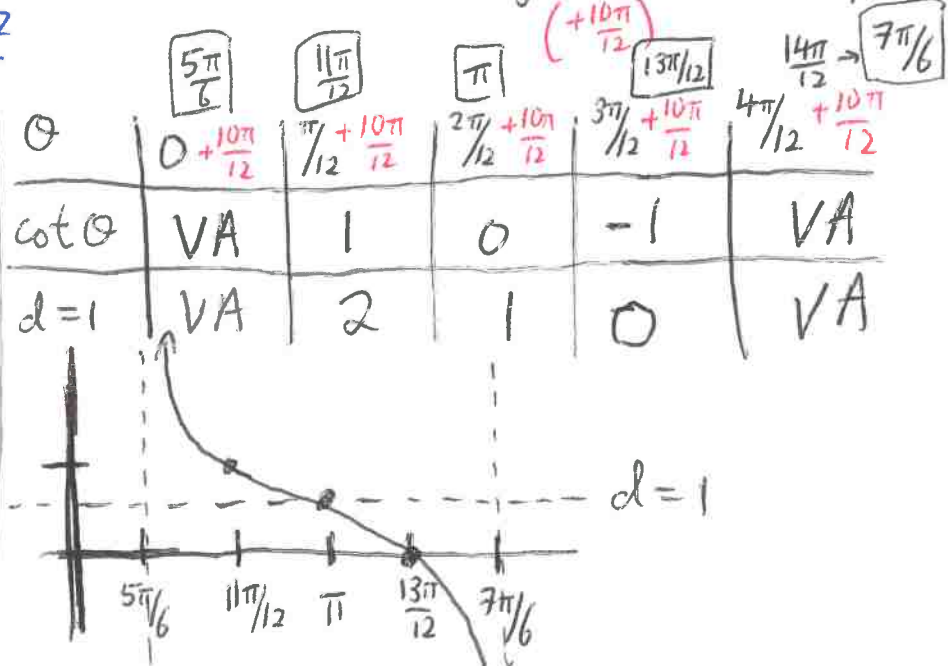 (+10π/12)
5π/6 11π/12 π 13π/12 14π/12 → 7π/6
θ 0 +10π/12 π/12 +10π/12 2π/12 +10π/12 3π/12 +10π/12 4π/12 +10π/12
cot θ VA 1 0 -1 VA
d = 1 VA 2 1 0 VA
d = 1
5π/6 11π/12 π 13π/12 7π/6